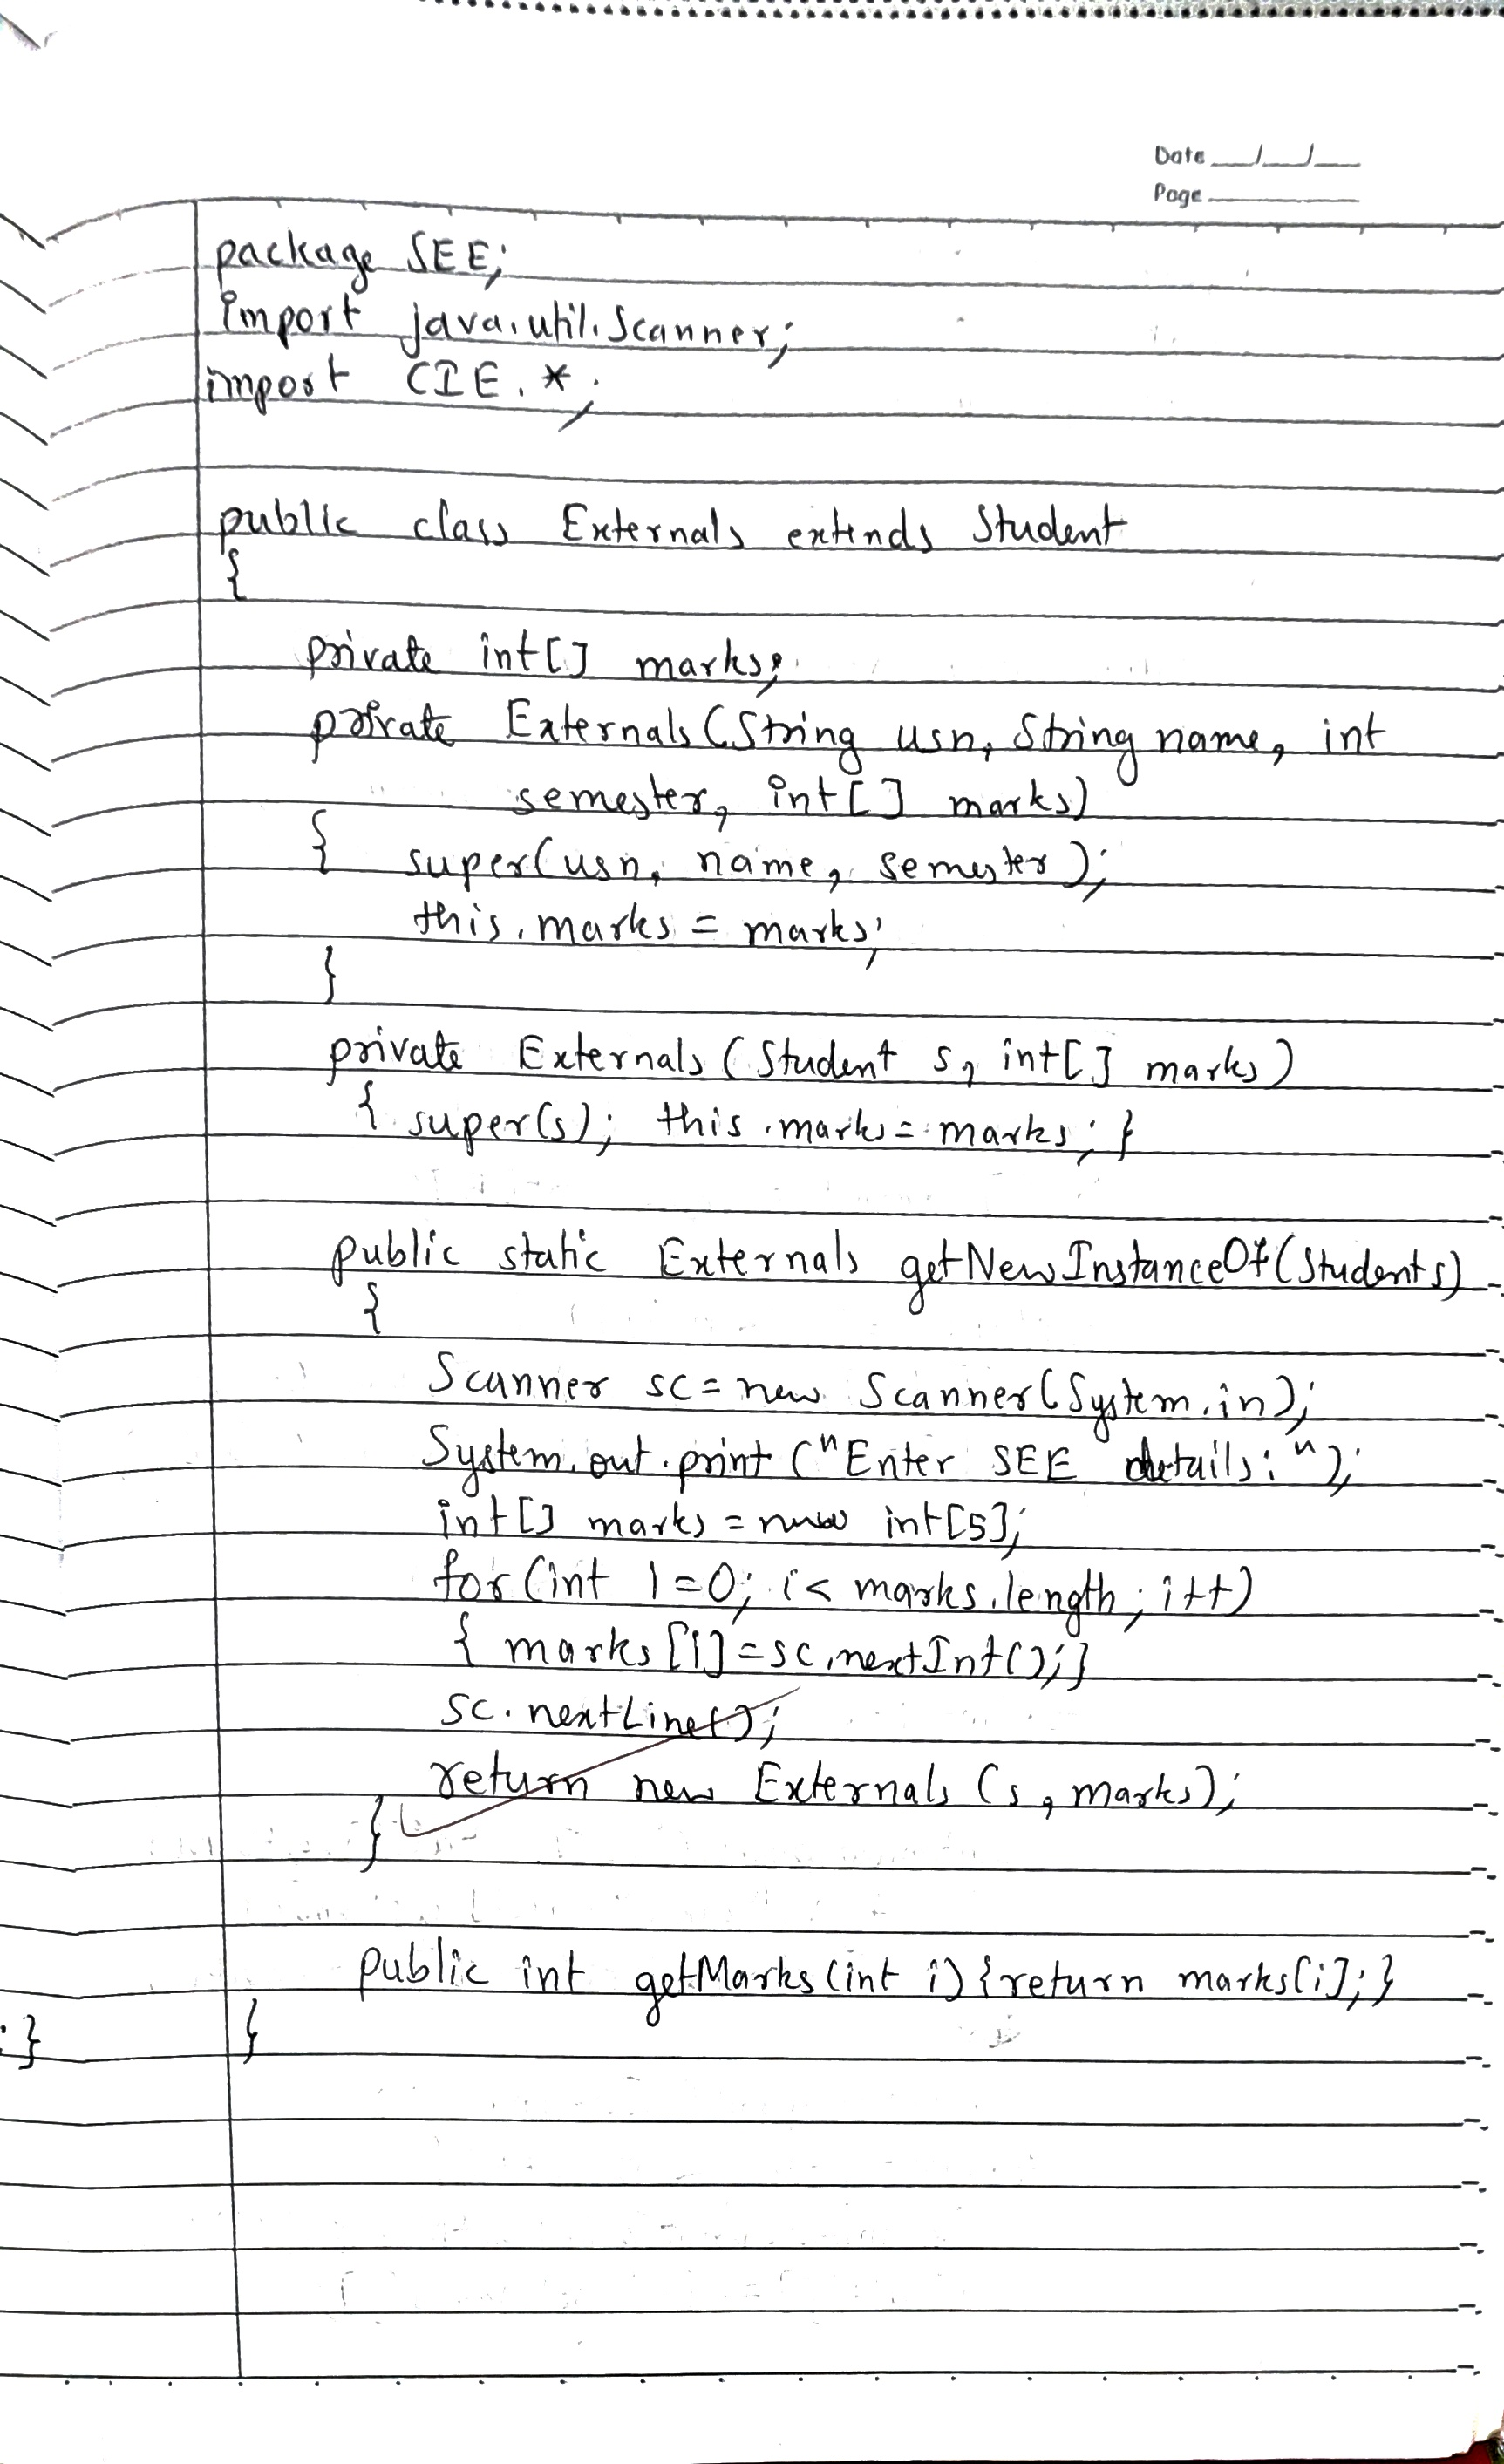 Date
Page
package SEE;
import java.util.Scanner;
import CIE.*;
public class Externals extends Student
{
private int[] marks;
private Externals (String usn, String name, int
semester, int[] marks)
{ super(usn, name, semester);
this.marks = marks;
}
private Externals (Student s, int[] marks)
{ super(s); this.marks = marks; }
public static Externals getNewInstanceOf(Student s)
{
Scanner sc = new Scanner(System.in);
System.out.print ("Enter SEE details: ");
int[] marks = new int[5];
for (int i=0; i< marks.length; i++)
{ marks[i]=sc.nextInt();}
sc.nextLine();
return new Externals (s, marks);
}
public int getMarks(int i) {return marks[i];}
;} }